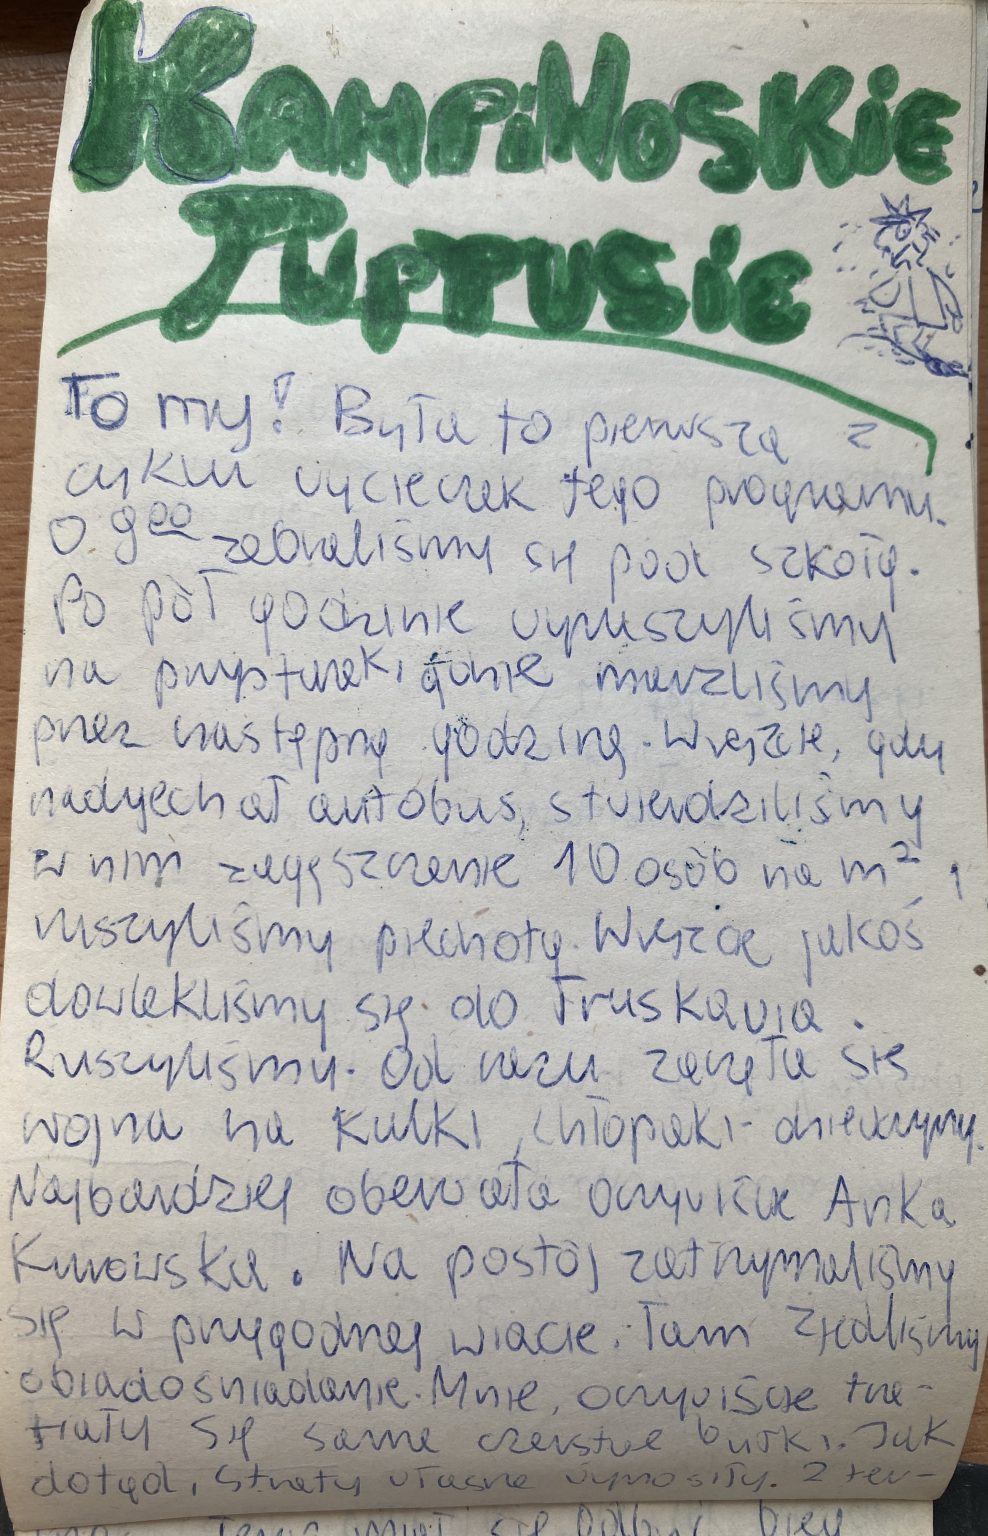 KAMPiNOSKiE
TUPTUSiE
To my! Była to pierwsza z
cyklu wycieczek tego programu.
O 9⁰⁰ zebraliśmy się pod szkołą.
Po pół godzinie wyruszyliśmy
na przystanek, gdzie marzliśmy
przez następną godzinę. Wreszcie, gdy
nadjechał autobus, stwierdziliśmy
w nim zagęszczenie 10 osób na m² i
ruszyliśmy piechotą. Wreszcie jakoś
dowlekliśmy się do Truskawia.
Ruszyliśmy. Od razu zaczęła się
wojna na kulki, chłopaki - dziewczyny.
Najbardziej oberwała oczywiście Anka
Kurowska. Na postój zatrzymaliśmy
się w przygodnej wiacie. Tam zjedliśmy
obiadośniadanie. Mnie, oczywiście tra-
fiały się same czerstwe bułki. Jak
dotąd, straty własne wynosiły. 2 ter-
się odbyć bieg